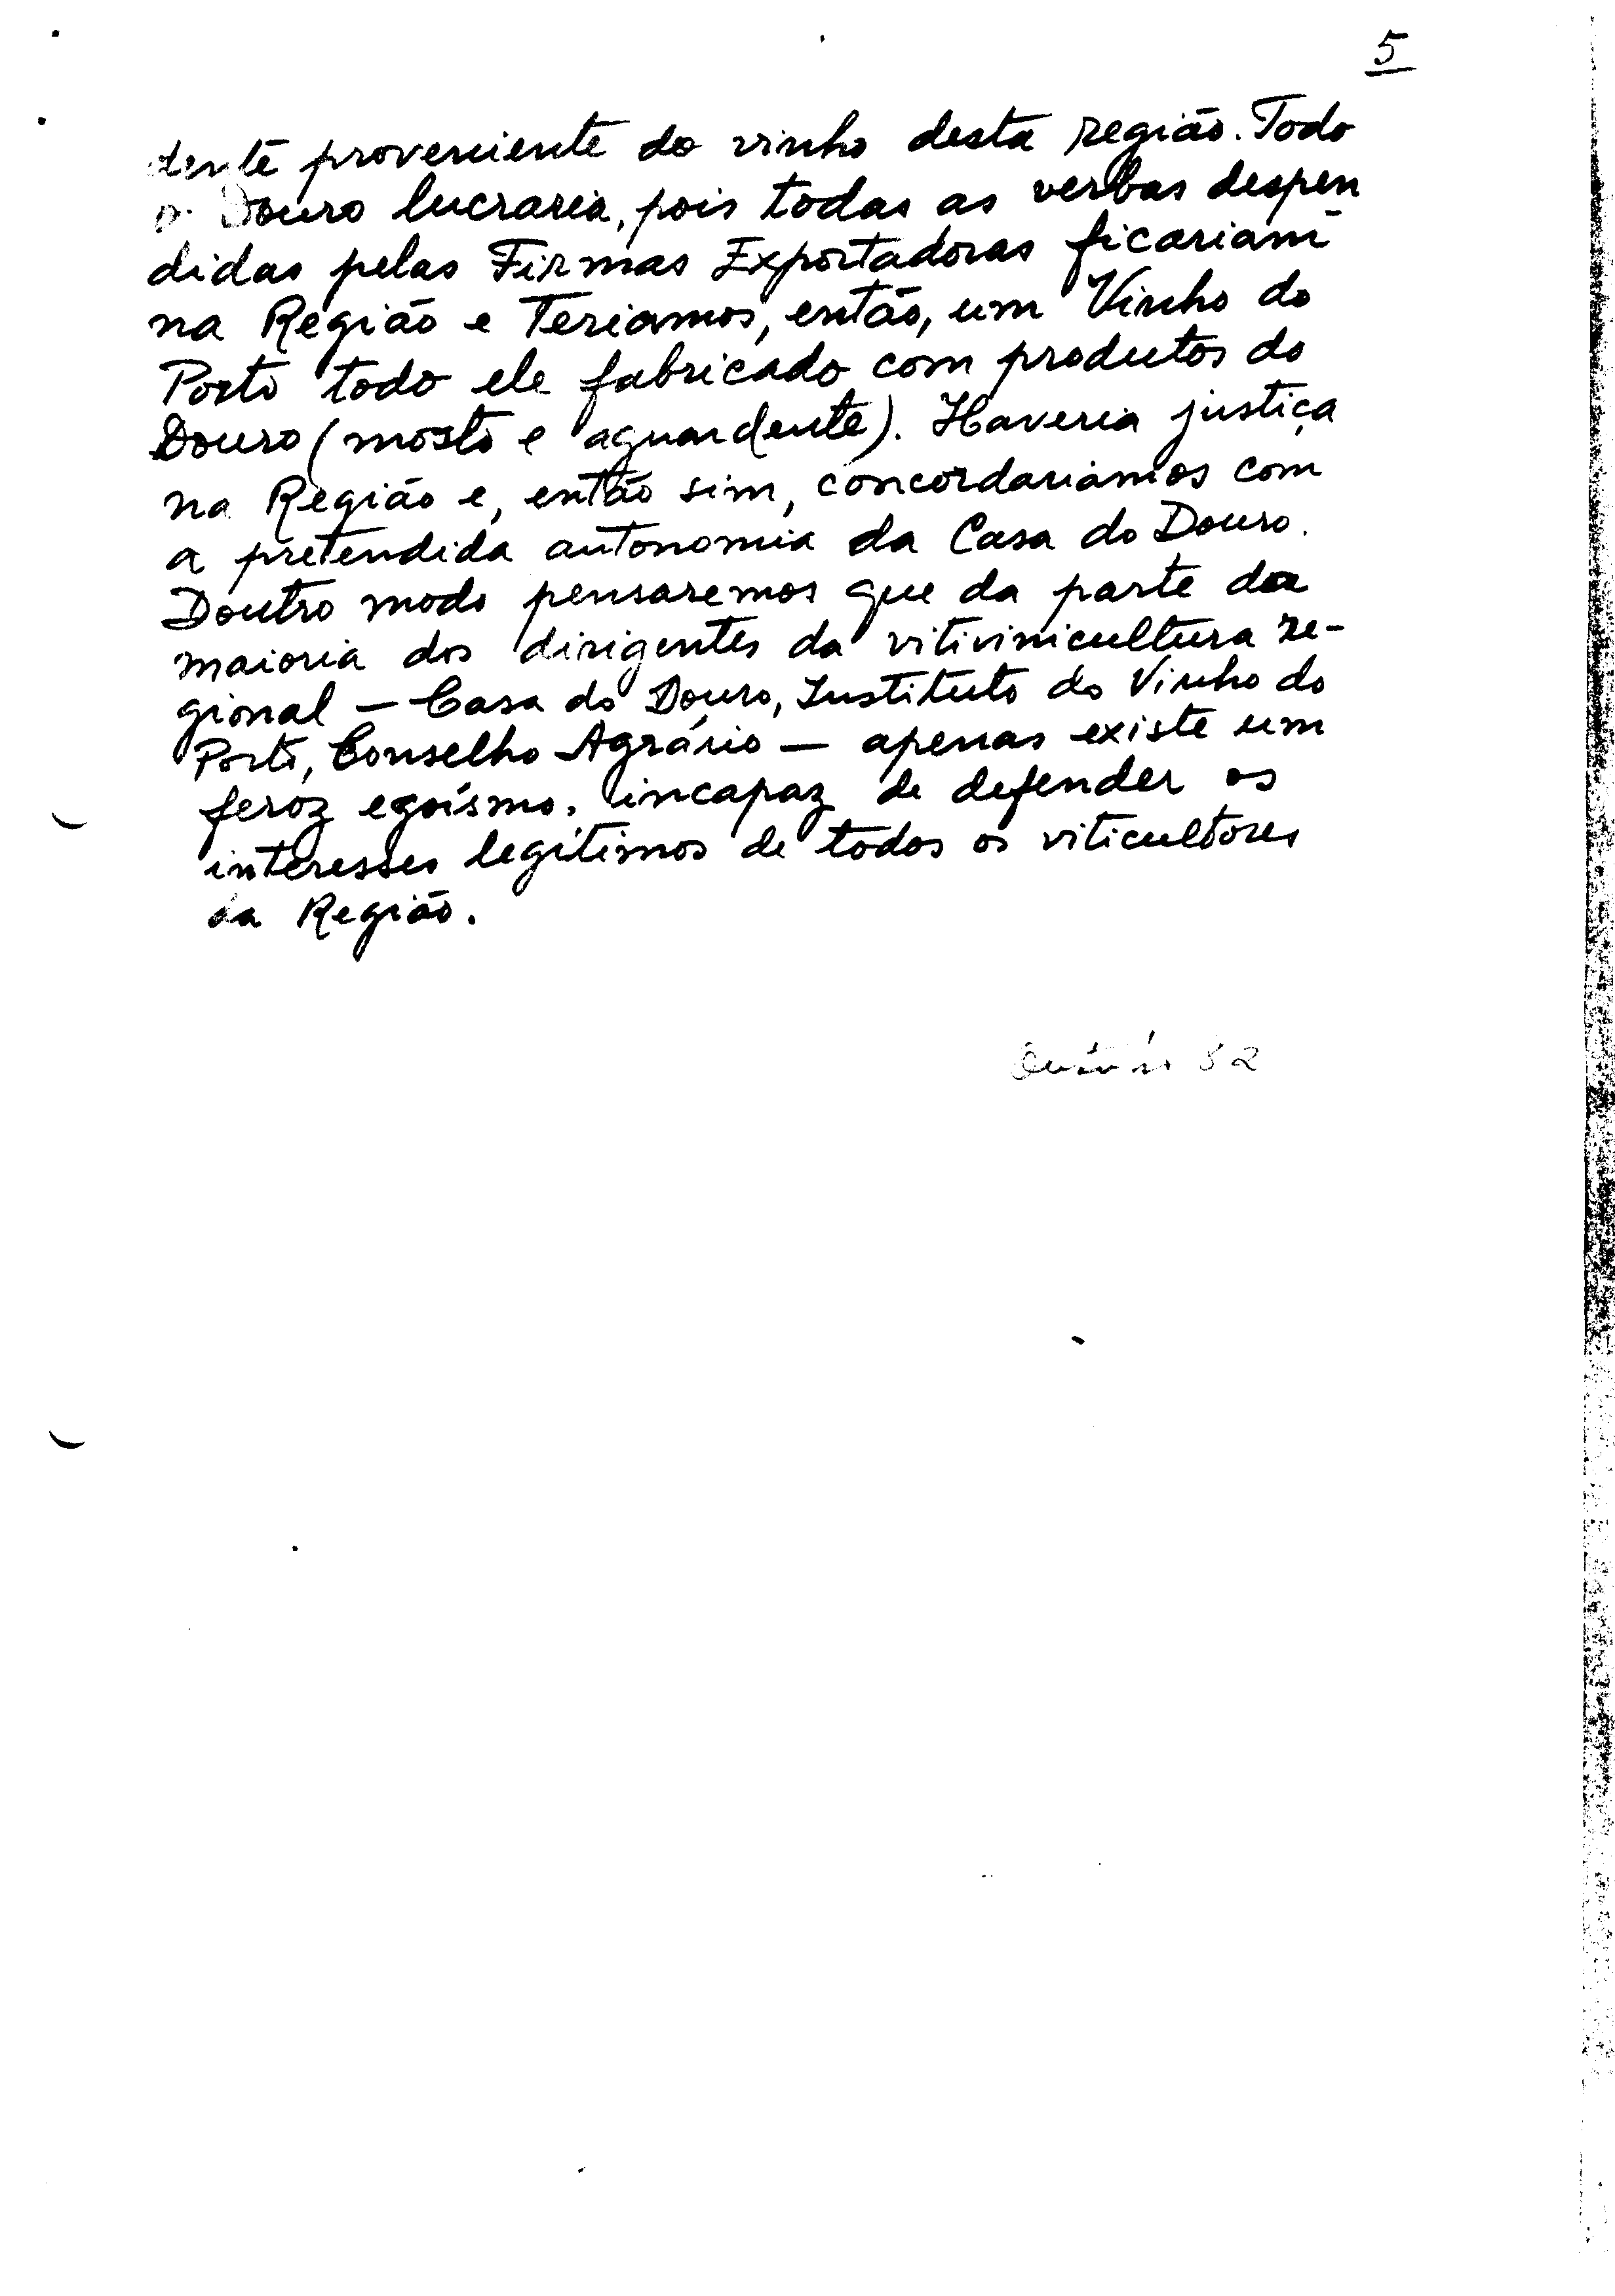 5
dente proveniente do vinho desta região. Todo
o Douro lucraria, pois todas as verbas despen
didas pelas Firmas Exportadoras ficariam
na Região e Teriamos, então, um Vinho do
Porto todo ele fabricado com produtos do
Douro (mosto e aguardente). Haveria justiça
na Região e, então sim, concordariamos com
a pretendida autonomia da Casa do Douro.
Doutro modo pensaremos que da parte da
maioria dos dirigentes da vitivinicultura re-
gional — Casa do Douro, Instituto do Vinho do
Porto, Conselho Agrário — apenas existe um
feroz egoísmo, incapaz de defender os
interesses legítimos de todos os viticultores
da Região.
82